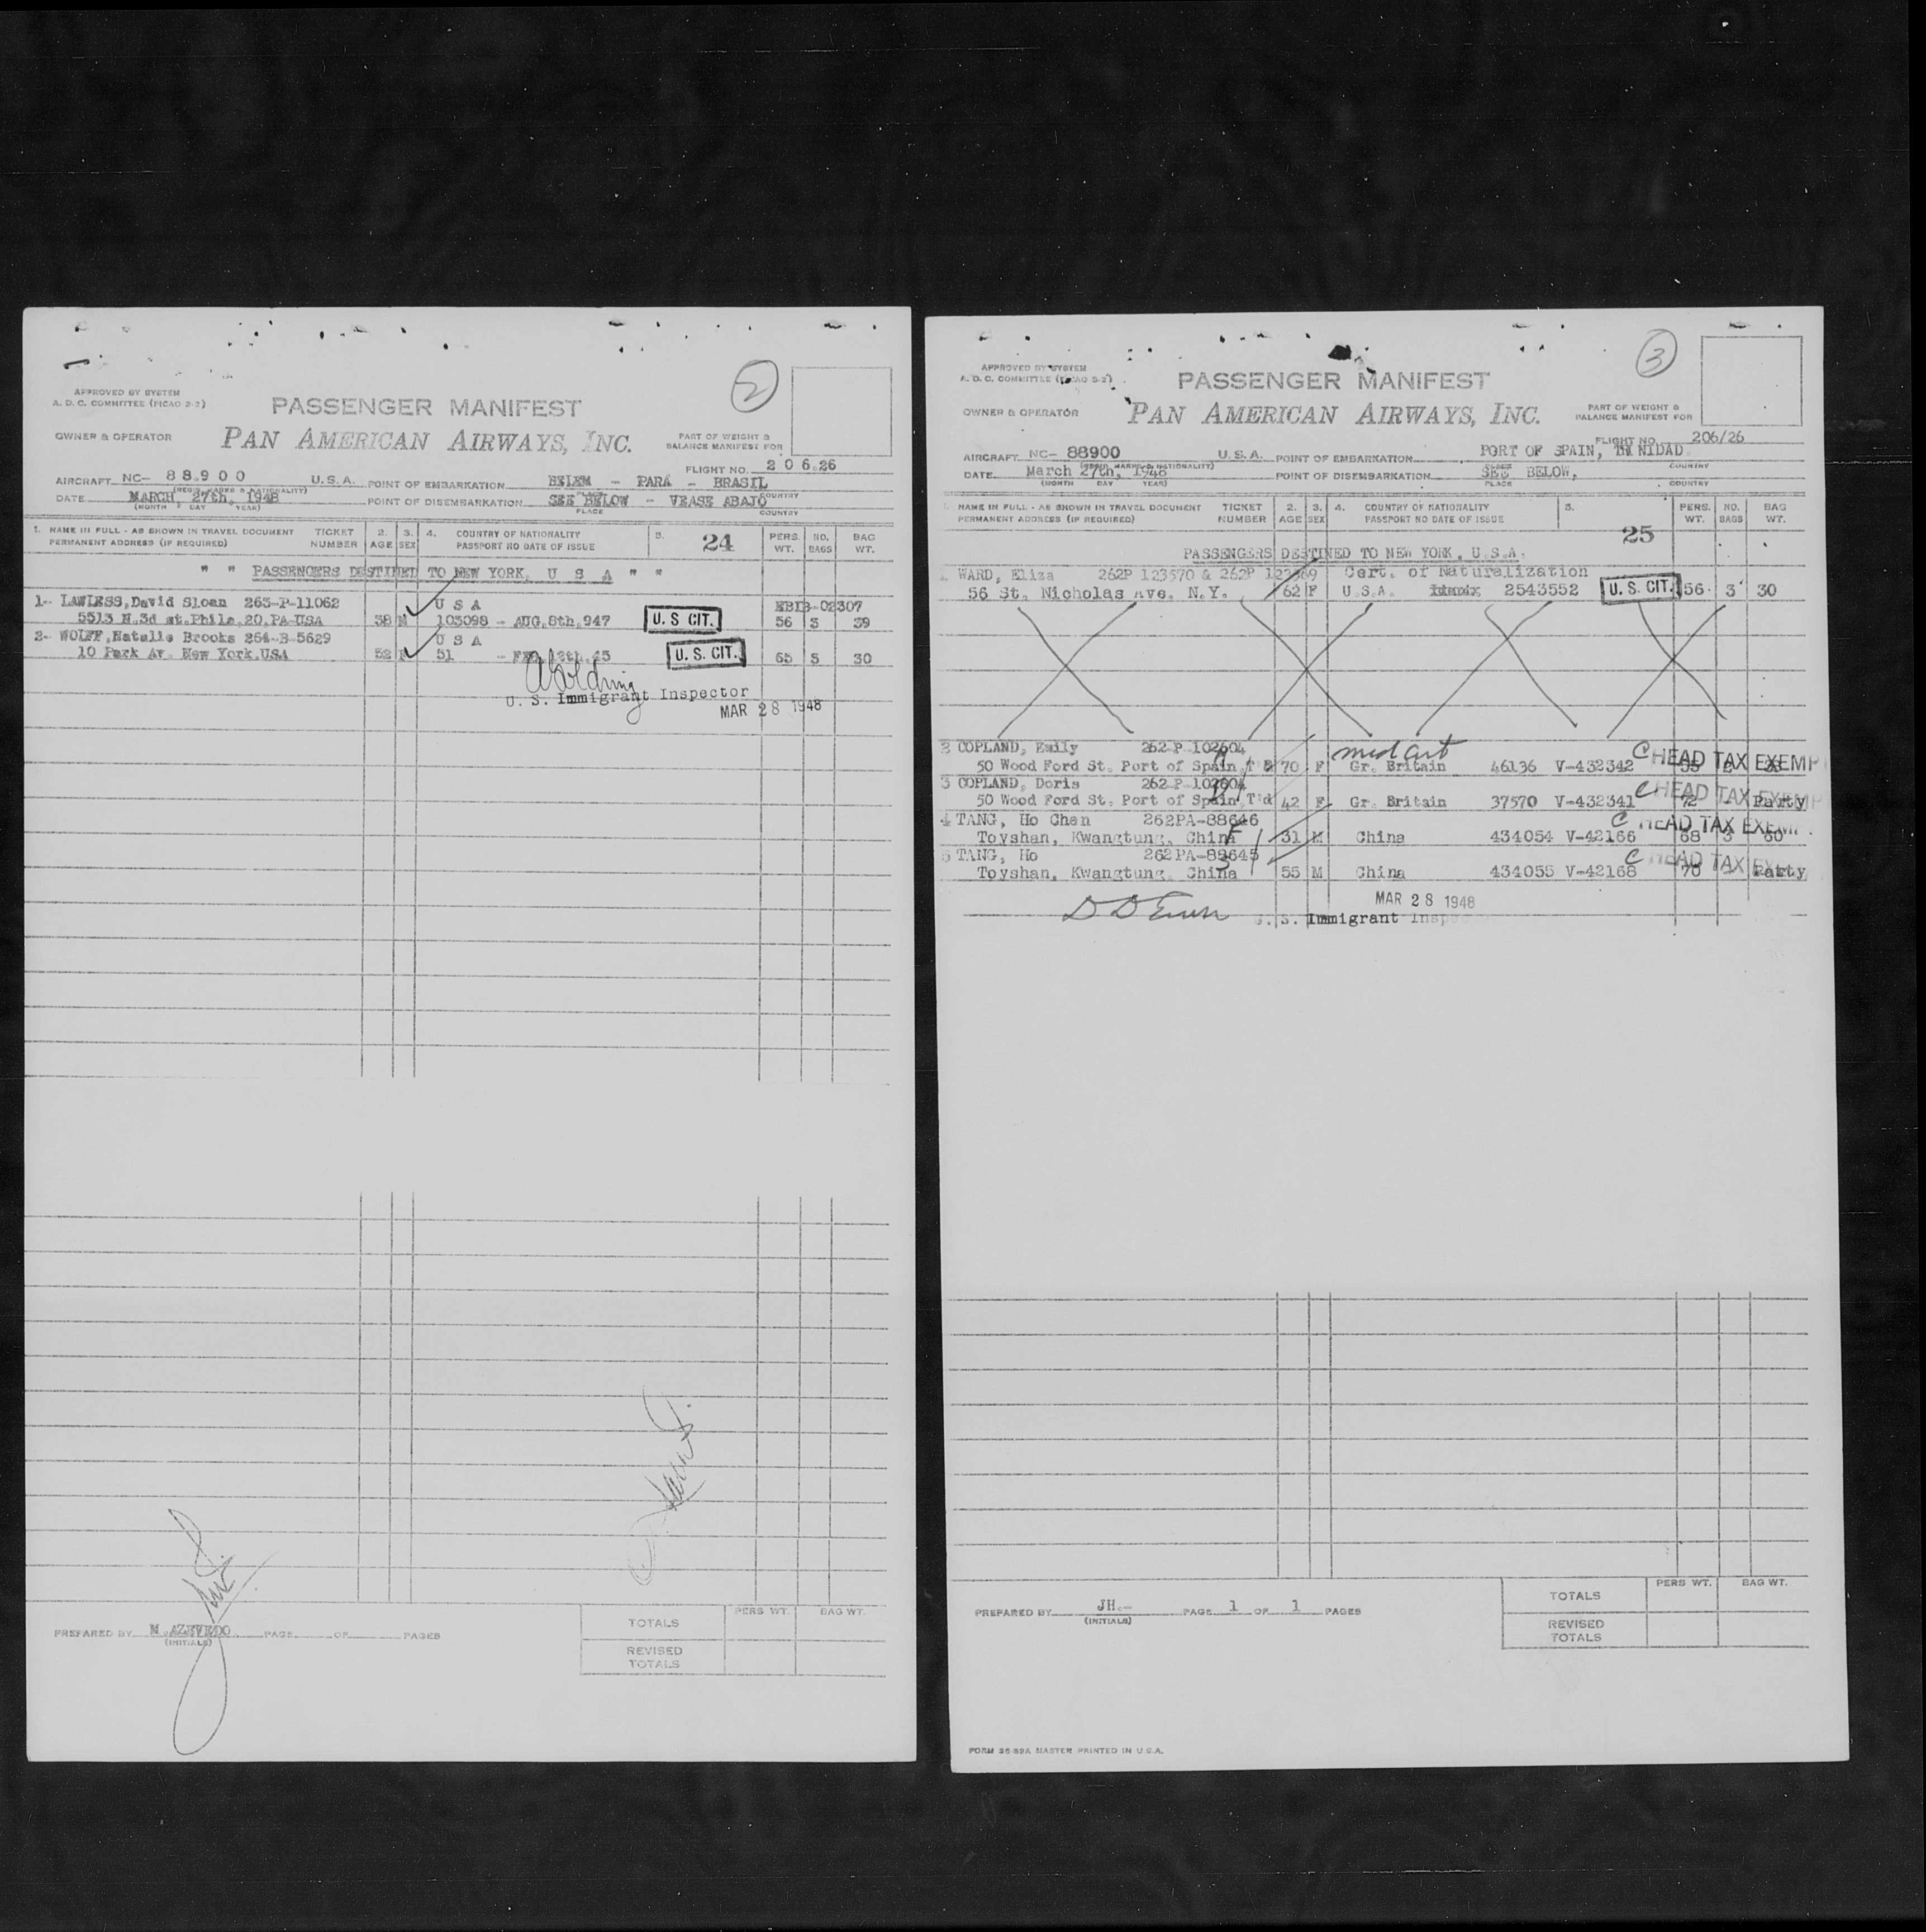 2
APPROVED BY SYSTEM
A. D. C. COMMITTEE (PICAO 2-2)
PASSENGER MANIFEST
OWNER & OPERATOR
PAN AMERICAN AIRWAYS, INC.
PART OF WEIGHT &
BALANCE MANIFEST FOR
FLIGHT NO. 206.26
AIRCRAFT NC- 88.900 U.S.A. POINT OF EMBARKATION BELEM - PARÁ - BRASIL
(REG'D. MARKS & NATIONALITY) PLACE COUNTRY
DATE MARCH 27th, 1948 POINT OF DISEMBARKATION SEE BELOW - VEASE ABAJO
(MONTH DAY YEAR) PLACE COUNTRY
1. NAME IN FULL - AS SHOWN IN TRAVEL DOCUMENT TICKET 2. 3. 4. COUNTRY OF NATIONALITY 5. 24 PERS. NO. BAG
PERMANENT ADDRESS (IF REQUIRED) NUMBER AGE SEX PASSPORT NO DATE OF ISSUE WT. BAGS WT.
" " PASSENGERS DESTINED TO NEW YORK, U S A " "
1- LAWLESS, David Sloan 263-P-11062 U S A 02307
5513 N.3d st.Phila.20,PA-USA 38 M 103098 - AUG.8th,947 U. S CIT. 56 3 39
2- WOLFF, Natalie Brooks 264-B-5629 U S A
10 Park Av. New York.USA 52 51 45 U. S. CIT. 65 3 30
U. S. Immigrant Inspector
MAR 28 1948
PREPARED BY M.AZEVEDO PAGE OF PAGES
(INITIALS)
PERS WT. BAG WT.
TOTALS
REVISED
TOTALS
3
APPROVED BY SYSTEM
A. D. C. COMMITTEE (PICAO 2-2)
PASSENGER MANIFEST
OWNER & OPERATOR
PAN AMERICAN AIRWAYS, INC.
PART OF WEIGHT &
BALANCE MANIFEST FOR
FLIGHT NO. 206/26
AIRCRAFT NC- 88900 U.S.A. POINT OF EMBARKATION PORT OF SPAIN, TRINIDAD
(REG'D. MARKS & NATIONALITY) PLACE COUNTRY
DATE March 27th, 1948 POINT OF DISEMBARKATION SEE BELOW,
(MONTH DAY YEAR) PLACE COUNTRY
1. NAME IN FULL - AS SHOWN IN TRAVEL DOCUMENT TICKET 2. 3. 4. COUNTRY OF NATIONALITY 5. 25 PERS. NO. BAG
PERMANENT ADDRESS (IF REQUIRED) NUMBER AGE SEX PASSPORT NO DATE OF ISSUE WT. BAGS WT.
PASSENGERS DESTINED TO NEW YORK, U.S.A.
WARD, Eliza 262P 123570 & 262P Cert. of Naturalization
56 St. Nicholas Ave. N.Y. 62 F U.S.A. 2543552 U. S. CIT. 56 3 30
2 COPLAND, Emily 262-P-102604 med cert
50 Wood Ford St. Port of Spain, T'd 70 F Gr. Britain 46136 V-432342 C HEAD TAX EXEMP
3 COPLAND, Doris 262-P-102604
50 Wood Ford St. Port of Spain, T'd 42 F Gr. Britain 37570 V-432341 C HEAD TAX EXEMP 72 - Party
4 TANG, Ho Chen 262PA-88646
Toyshan, Kwangtung, China 31 M China 434054 V-42166 C HEAD TAX EXEM 68 3 60
5 TANG, Ho 262PA-88645
Toyshan, Kwangtung, China 55 M China 434055 V-42168 C HEAD TAX 70 - Party
MAR 28 1948
U. S. Immigrant Inspe
PREPARED BY JH.- PAGE 1 OF 1 PAGES
(INITIALS)
PERS WT. BAG WT.
TOTALS
REVISED
TOTALS
FORM 26-82A MASTER PRINTED IN U.S.A.